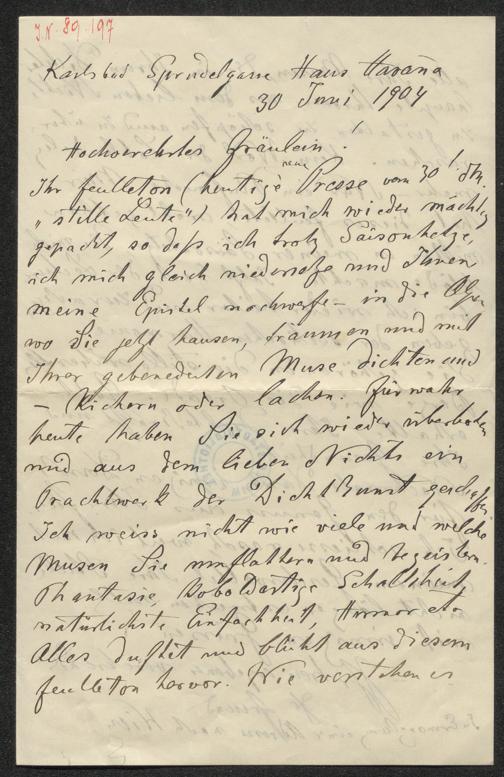 I.N. 89.197
Karlsbad Sprudelgasse Haus Havana
30 Juni 1904
Hochverehrtes Fräulein!
neue
Ihr feulleton (heutige Presse vom 30/. ds.
„stille Leute") hat mich wieder mächtig
gepackt, so daß ich trotz Saisonhetze,
ich mich gleich niedersetze und Ihnen
meine Epistel nachwerfe – in die Alpen
wo Sie jetzt hausen, träumen und mit
Ihrer gebenedeiten Muse dichten und
– Kichern oder lachen. fürwahr
heute haben Sie sich wieder überboten
und aus dem lieben Nichts ein
Prachtwerk der Dichtkunst geschaffen
Ich weiss nicht wie viele und welche
Musen Sie umflattern und begeistern.
Phantasie, koboldartige Schalkheit,
natürlichste Einfachheit, Humor etc
Alles duftet und blüht aus diesem
feulleton hervor. Wie verstehen es